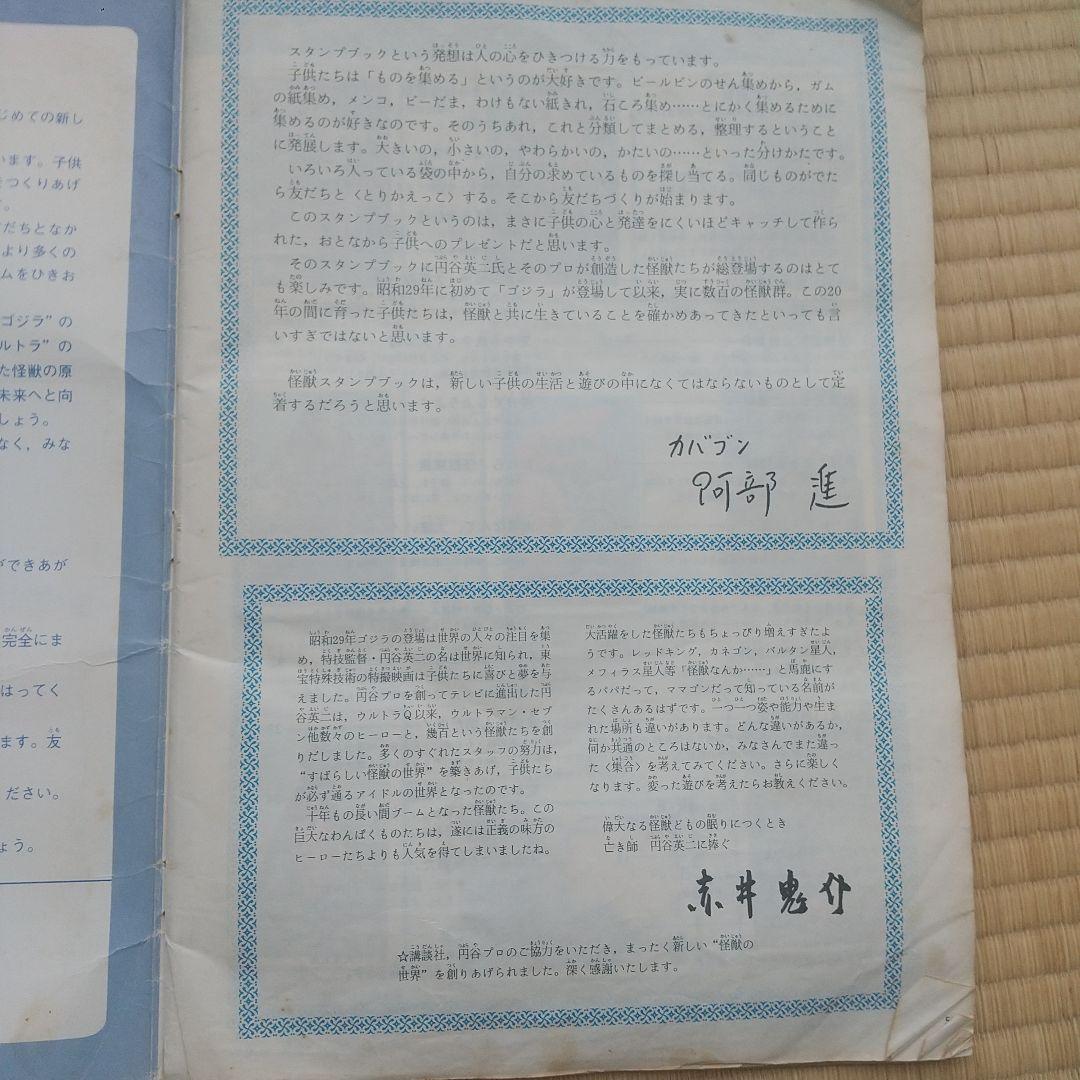 じめての新し
います。子供
をつくりあげ
。
だちとなか
より多くの
ムをひきお
ゴジラ”の
ルトラ”の
た怪獣の原
未来へと向
しょう。
なく，みな
ができあが
完全にま
はってく
ます。友
ください。
ょう。
スタンプブックという発想は人の心をひきつける力をもっています。
子供たちは「ものを集める」というのが大好きです。ビールビンのせん集めから，ガム
の紙集め，メンコ，ビーだま，わけもない紙きれ，石ころ集め……とにかく集めるために
集めるのが好きなのです。そのうちあれ，これと分類してまとめる，整理するということ
に発展します。大きいの，小さいの，やわらかいの，かたいの……といった分けかたです。
いろいろ入っている袋の中から，自分の求めているものを探し当てる。同じものがでた
ら友だちと〈とりかえっこ〉する。そこから友だちづくりが始まります。
このスタンプブックというのは，まさに子供の心と発達をにくいほどキャッチして作ら
れた，おとなから子供へのプレゼントだと思います。
そのスタンプブックに円谷英二氏とそのプロが創造した怪獣たちが総登場するのはとて
も楽しみです。昭和29年に初めて「ゴジラ」が登場して以来，実に数百の怪獣群。この20
年の間に育った子供たちは，怪獣と共に生きていることを確かめあってきたといっても言
いすぎではないと思います。
怪獣スタンプブックは，新しい子供の生活と遊びの中になくてはならないものとして定
着するだろうと思います。
カバゴン
阿部 進
昭和29年ゴジラの登場は世界の人々の注目を集
め，特技監督・円谷英二の名は世界に知られ，東
宝特殊技術の特撮映画は子供たちに喜びと夢を与
えました。円谷プロを創ってテレビに進出した円
谷英二は，ウルトラQ以来，ウルトラマン・セブ
ン他数々のヒーローと，幾百という怪獣たちを創
りだしました。多くのすぐれたスタッフの努力は，
“すばらしい怪獣の世界”を築きあげ，子供たち
が必ず通るアイドルの世界となったのです。
十年もの長い間ブームとなった怪獣たち。この
巨大なわんぱくものたちは，遂には正義の味方の
ヒーローたちよりも人気を得てしまいましたね。
大活躍をした怪獣たちもちょっぴり増えすぎたよ
うです。レッドキング，カネゴン，バルタン星人，
メフィラス星人等「怪獣なんか……」と馬鹿にす
るパパだって，ママゴンだって知っている名前が
たくさんあるはずです。一つ一つ姿や能力や生ま
れた場所も違いがあります。どんな違いがあるか，
何か共通のところはないか，みなさんでまた違っ
た〈集合〉を考えてみてください。さらに楽しく
なります。変った遊びを考えたらお教えください。
偉大なる怪獣どもの眠りにつくとき
亡き師 円谷英二に捧ぐ
赤井鬼介
☆講談社，円谷プロのご協力をいただき，まったく新しい“怪獣の
世界”を創りあげられました。深く感謝いたします。